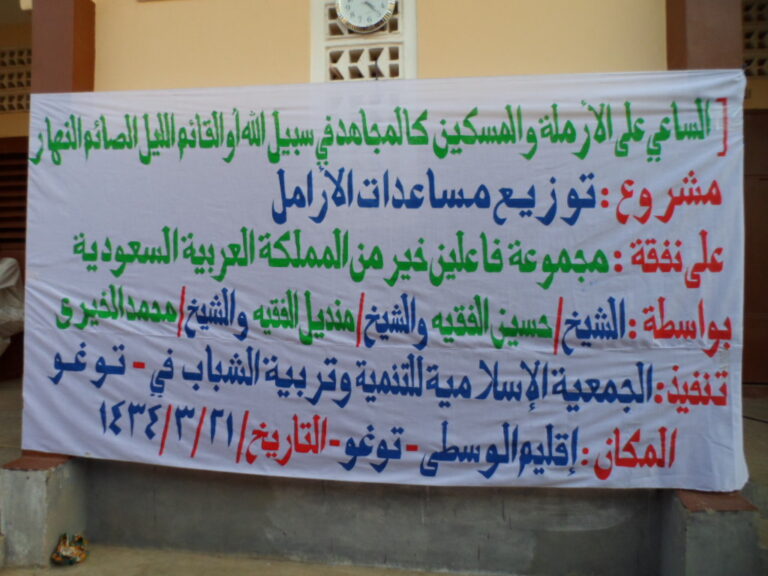 [ الساعي على الأرملة والمسكين كالمجاهد في سبيل الله أو القائم الليل الصائم النهار
مشروع : توزيع مساعدات الأرامل
على نفقة : مجموعة فاعلين خير من المملكة العربية السعودية
بواسطة : الشيخ / حسين الفقيه والشيخ / منديل الفقيه والشيخ / محمد الخيري
تنفيذ : الجمعية الإسلامية للتنمية وتربية الشباب في - توغو
المكان : إقليم الوسطى - توغو - التاريخ / ٢١ / ٣ / ١٤٣٤